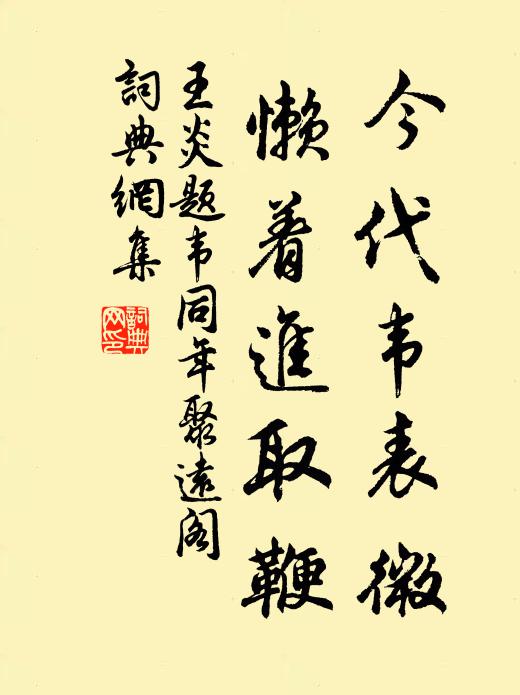 今代韦表微
懒着進取鞭
王炎题韦同年聚遠阁
詞典網集
詞典网印